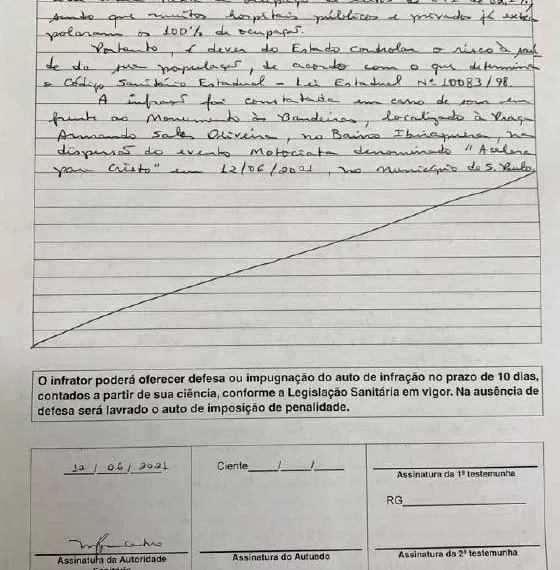 sendo que muitos hospitais públicos e privados já extra
polaram os 100% de ocupação.
Portanto, é dever do Estado controlar o risco à saú
de da sua população, de acordo com o que determina
o Código Sanitário Estadual - Lei Estadual Nº 10083/98.
A infração foi constatada em carro de som em
frente ao Monumento às Bandeiras, localizado à Praça
Armando Sales Oliveira, no Bairro Ibirapuera, na
dispersão do evento Motociata denominado "Acelera
para Cristo" em 12/06/2021, no município de S. Paulo.
O infrator poderá oferecer defesa ou impugnação do auto de infração no prazo de 10 dias,
contados a partir de sua ciência, conforme a Legislação Sanitária em vigor. Na ausência de
defesa será lavrado o auto de imposição de penalidade.
12 / 06 / 2021
Ciente ___/___/___
Assinatura da 1ª testemunha
RG
Assinatura da Autoridade
Sanitária
Assinatura do Autuado
Assinatura da 2ª testemunha